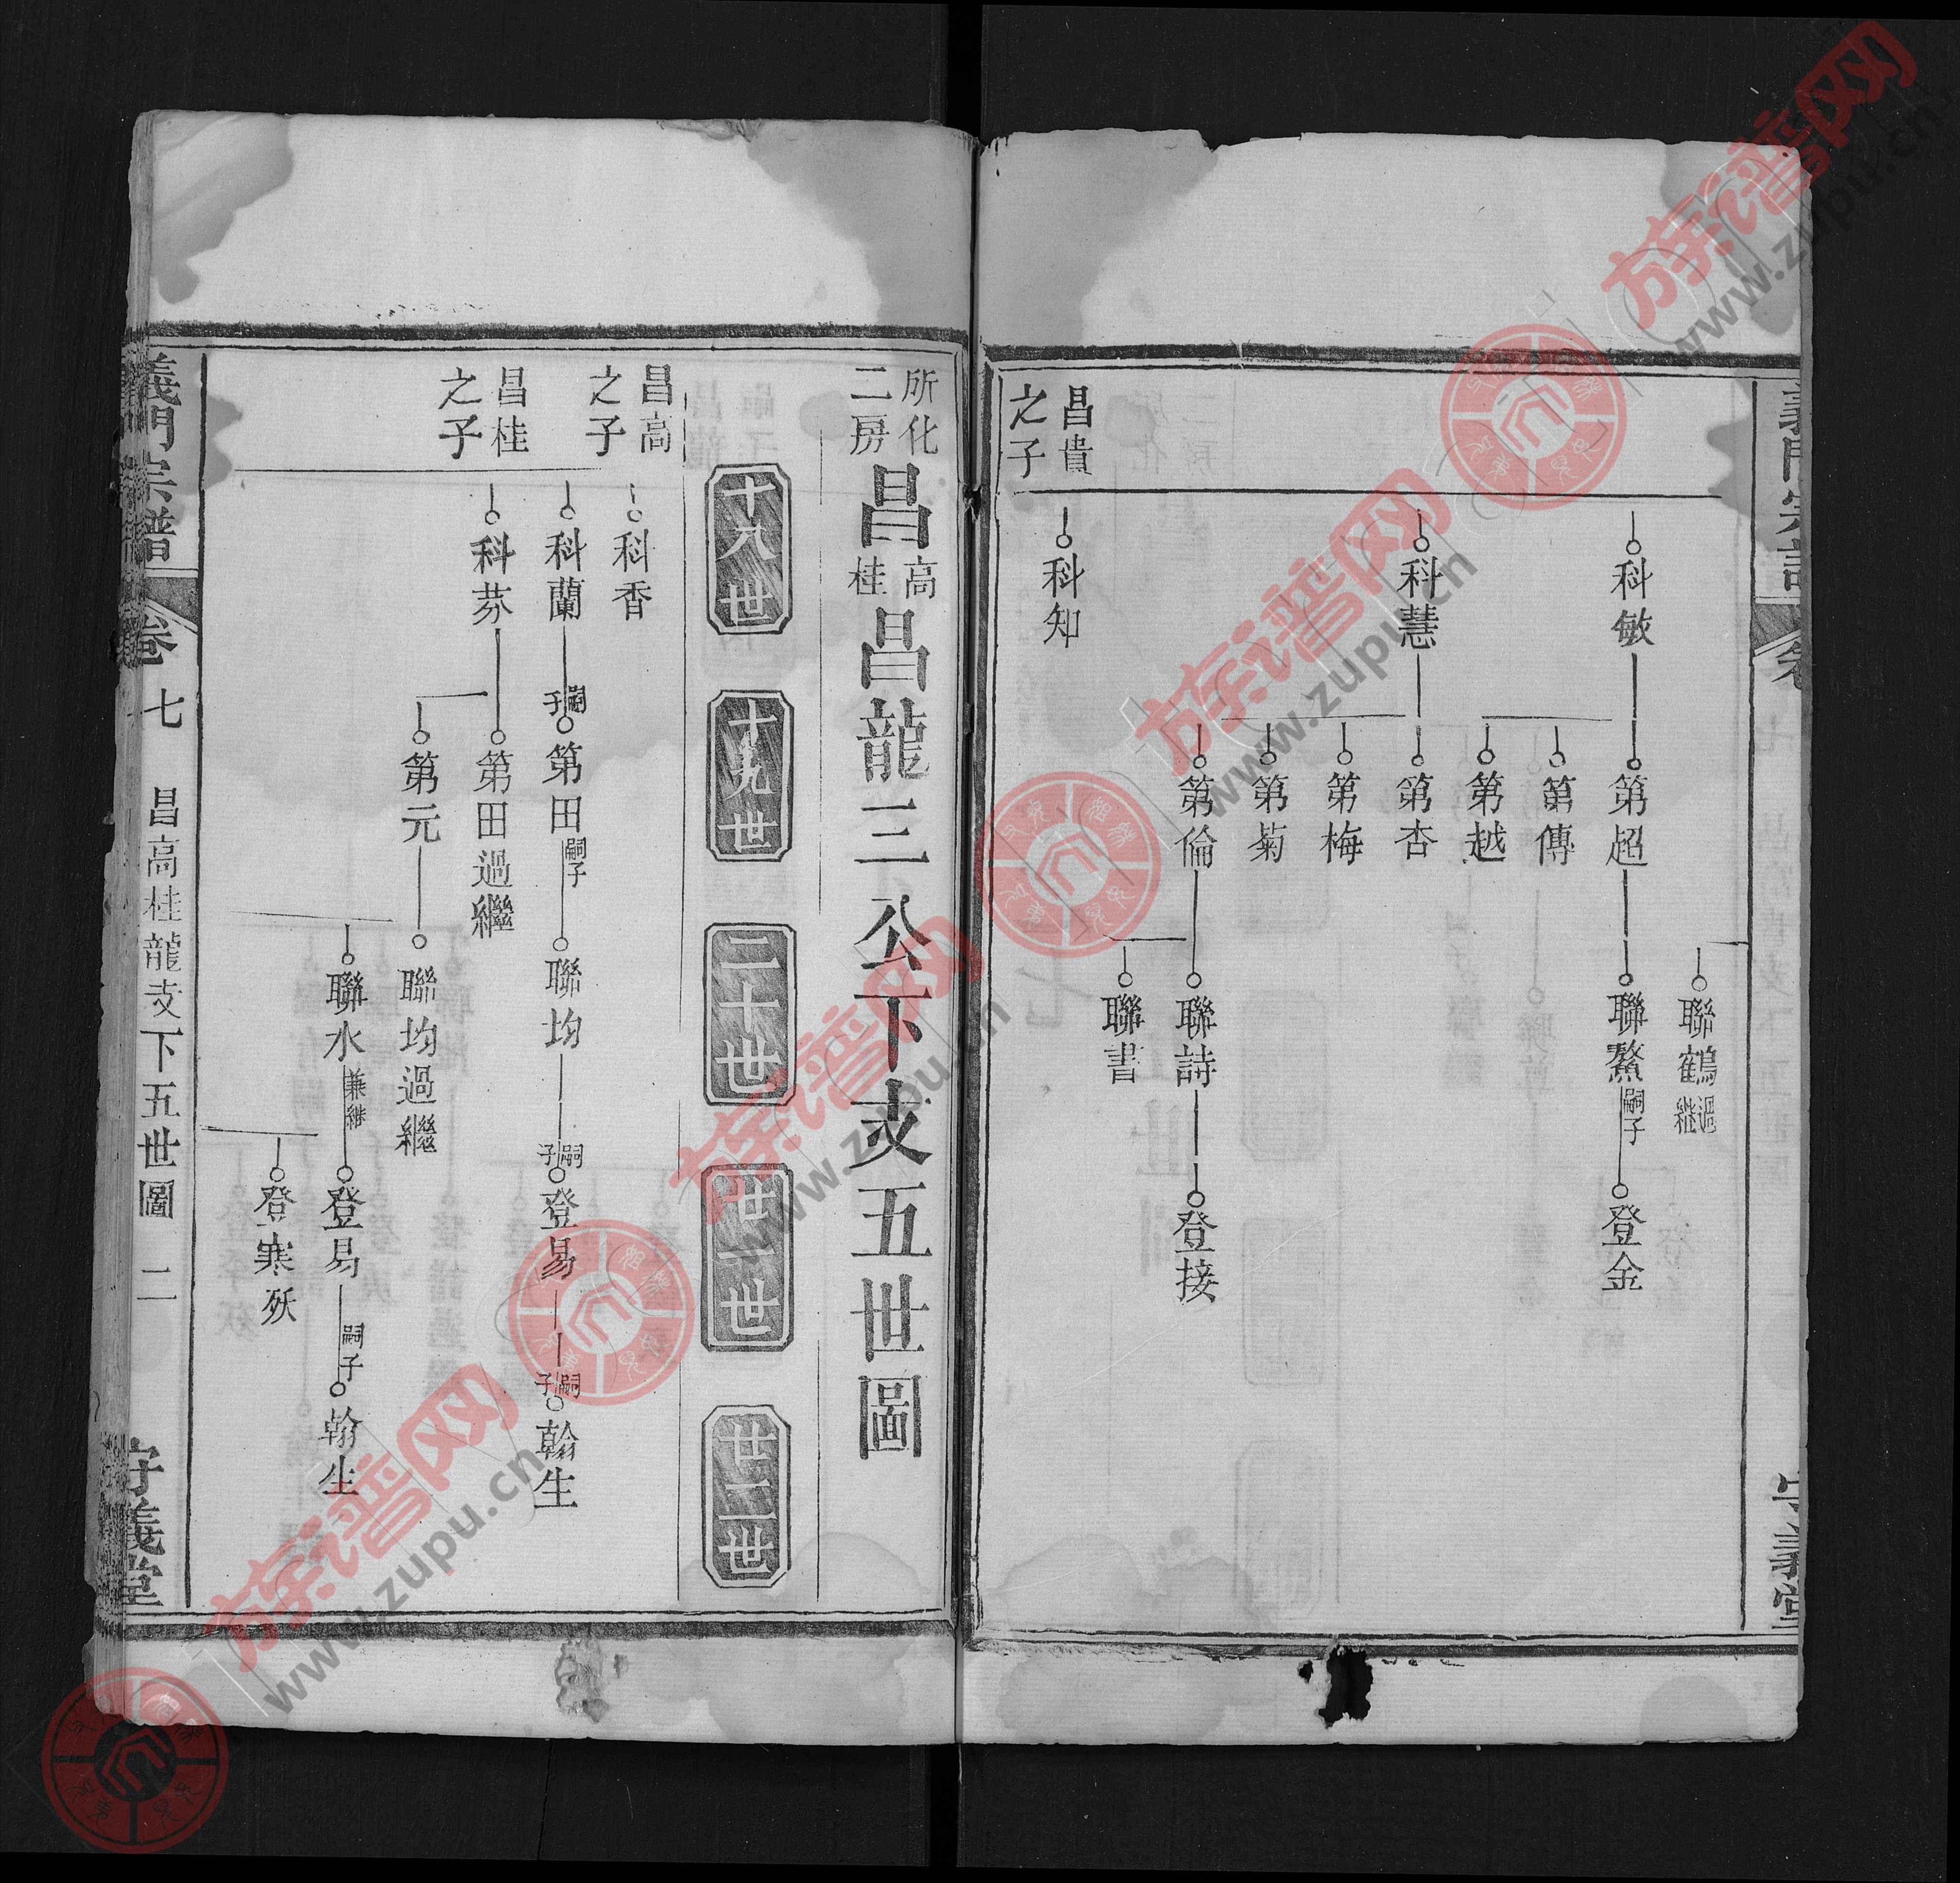 科敏
第超
聯鶴過繼
聯鰲嗣子
登金
第傳
第越
科慧
第杏
第梅
第菊
第倫
聯詩
登接
聯書
科知
昌貴
之子
所化
二房
昌高桂昌龍三公下支五世圖
十八世
十九世
二十世
廿一世
廿二世
昌高
之子
科香
科蘭
嗣子
第田嗣子
聯均
嗣子
登易
嗣子
翰生
昌桂
之子
科芬
第田過繼
第元
聯均過繼
聯水兼繼
登易嗣子
翰生
登寒殀
義門宗譜
卷七
昌高桂龍支下五世圖
二
守義堂
族谱网
www.zupu.cn
族谱网
www.zupu.cn
族谱网
www.zupu.cn
族谱网
www.zupu.cn